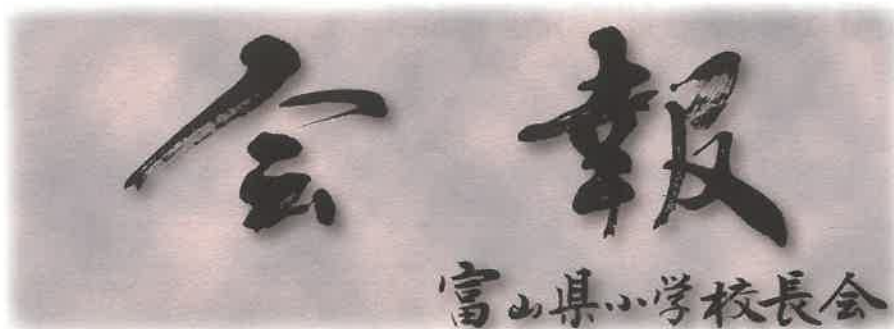 会報
富山県小学校長会